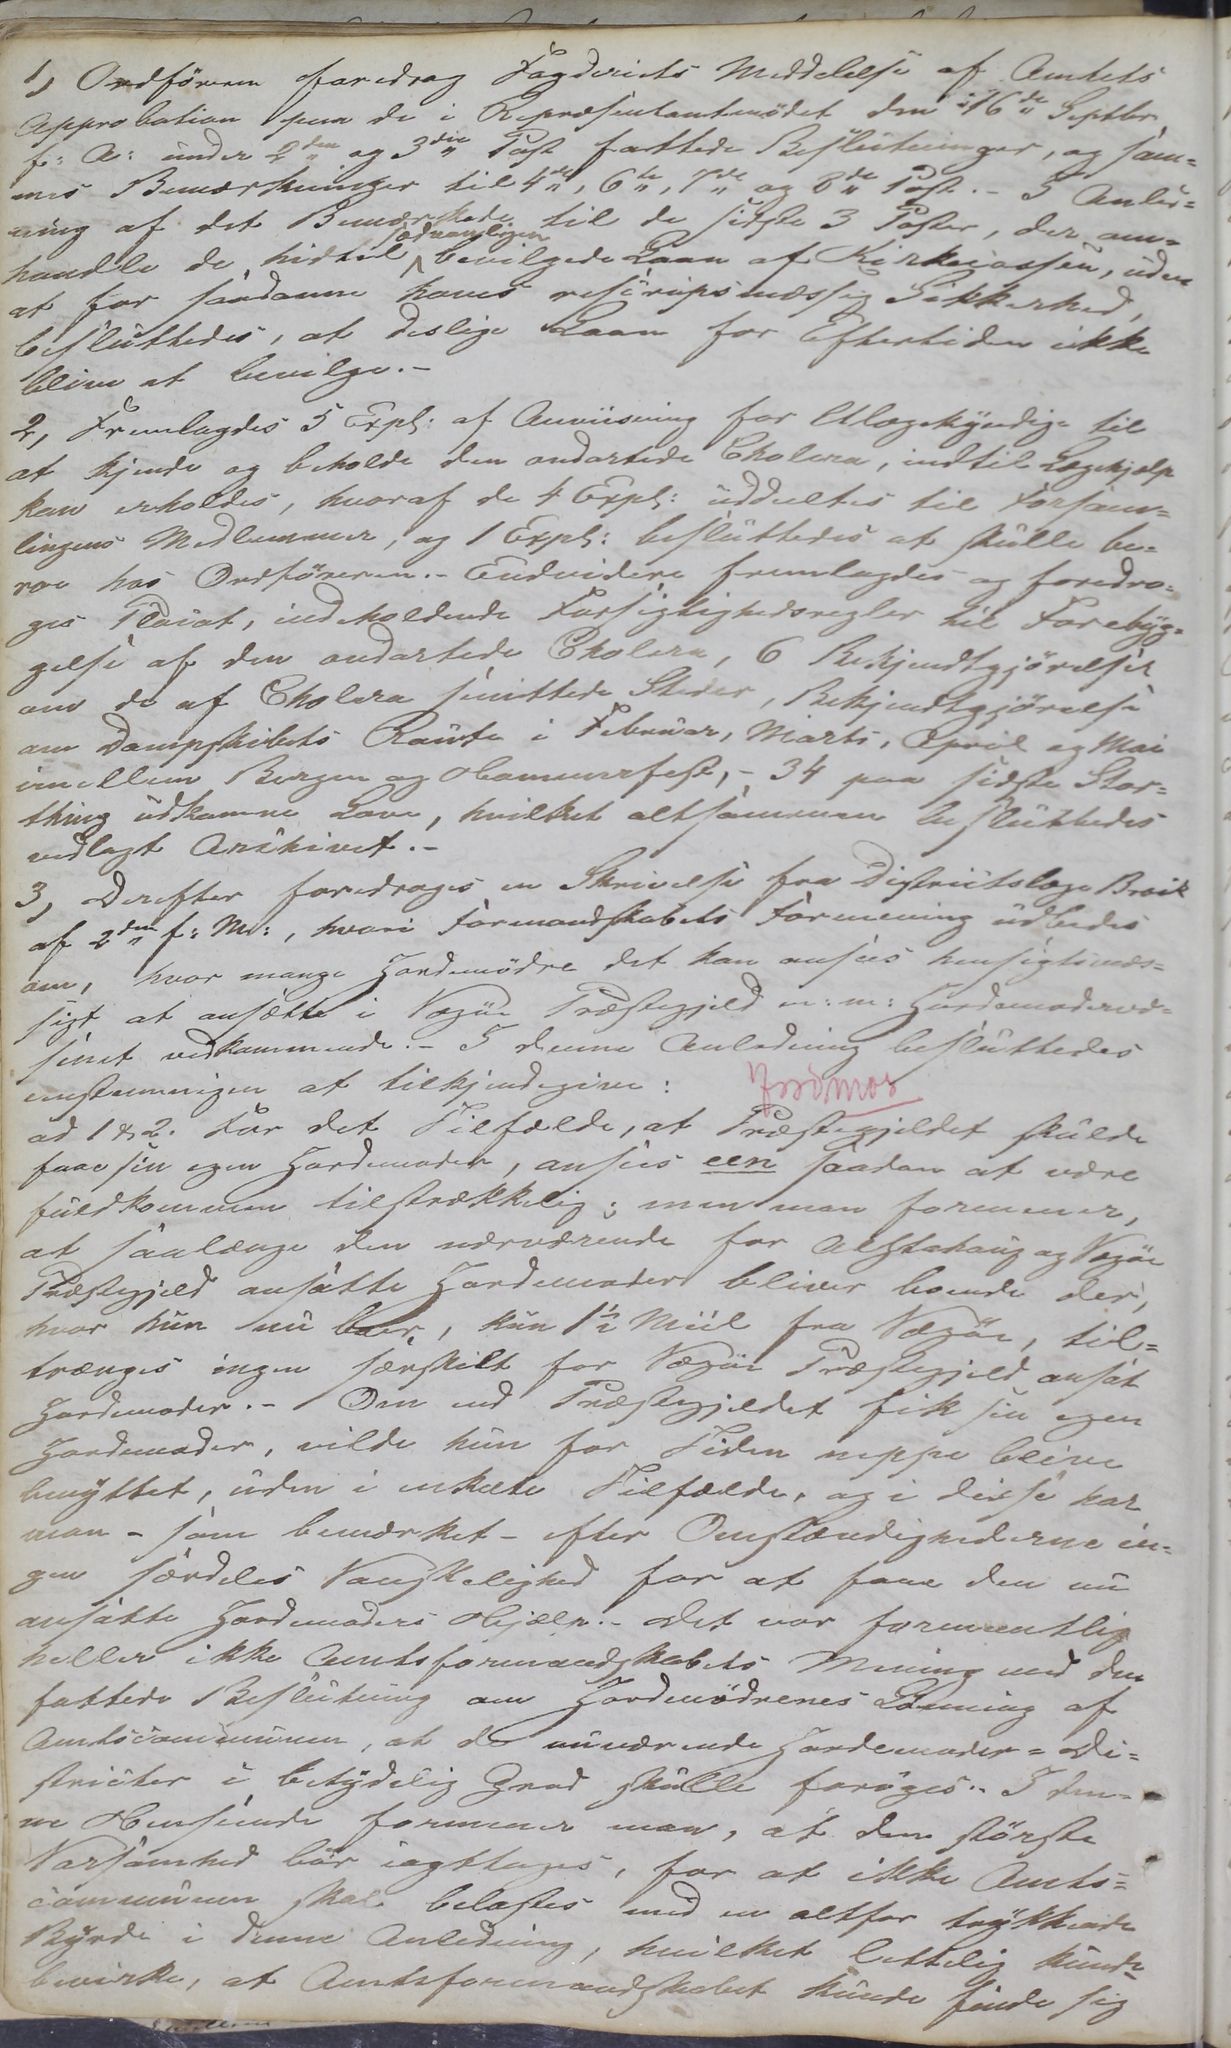 1, Ordføreren foredrog Fogderiets Meddelelse af Amtets
Approbation paa de i Repræsentantmødet den 16de Septbr.
f: A: under 2den og 3die Post fattede Beslutninger, og sam-
mes Bemærkninger til 4de, 6te, 7de og 8de Post.- I Anled-
ning af det Bemærkede til de sidste 3 Poster, der om-
handle de hidtil sædvanligen bevilgede Laan af Kirkecassen, uden
at for saadanne haves rescripsmæssig Sikkerhed,
besluttedes, at deslige Laan for Eftertiden ikke
blive at bevilge.-
2, Fremlagdes 5 Expl: af Anviisning for Ulægekyndige til
at kjende og beholde den ondartede Cholera, indtil Lægehjelp
kan erholdes, hvoraf de 4 Expl: uddeeltes til Forsam-
lingens Medlemmer, og 1 Expl: besluttedes at skulle be-
roe hos Ordføreren.- Endvidere fremlagdes og foredro-
ges Placat, indeholdende Forsigtighedsregler til Forebyg-
gelse af den ondartede Cholera, 6 Bekjendtgjørelser
om de af Cholera smittede Steder, Bekjendtgjørelse
om Dampskibets Route i Februar, Marts, April og Mai
imellem Bergen og Hammerfest, - 34 paa sidste Stor-
thing udkomne Love, hvilket altsammen besluttedes
vedlagt Archivet.-
3, Derefter foredroges en Skrivelse fra Districtslæge Brock
af 2den f: M:, hvori Formandskabets Formening udbedes
om, hvor mange Jordemødre det kan ansees hensigtsmæs-
sigt at ansætte i Vegøe Præstegjeld m: m: Jordemodervæ-
senet vedkommende.- I denne Anledning besluttedes
enstemmigen at tilkjendegive:
Jordmor
ad 1 & 2. For det Tilfælde, at Præstegjeldet skulde
faae sin egen Jordemoder, ansees een saadan at være
fuldkommen tilstrækkelig; men man formener,
at saalænge den nærværende for Alstahaug og Vegøe
Præstegjeld ansatte Jordemoder bliver boende der,
hvor hun nu boer, kun 1½ Miil fra Vegøe, til-
trænges ingen særskilt for Vegøe Præstegjeld ansat
Jordemoder.- Om end Præstegjeldet fik sin egen
Jordemoder, vilde hun for Tiden neppe blive
benyttet, uden i enkelte Tilfælde, og i disse har
man - som bemærket - efter Omstændighederne in-
gen særdeles Vanskelighed for at faae den nu
ansatte Jordemoders Hjælp.- Det var formentlig
heller ikke Amtsformandskabets Mening med den
fattede Beslutning om Jordemødrenes Lønning af
Amtscommunen, at de nuværende Jordemoder-Di-
stricter i betydelig Grad skulle forøges.- I den-
ne Henseende formener man, at den største
Varsomhed bør iagttages, for at ikke Amts-
communen skal belastes med en altfor trykkende
Byrde i denne Anledning, hvilket lettelig kunde
bevirke, at Amtsformandskabet kunde finde sig